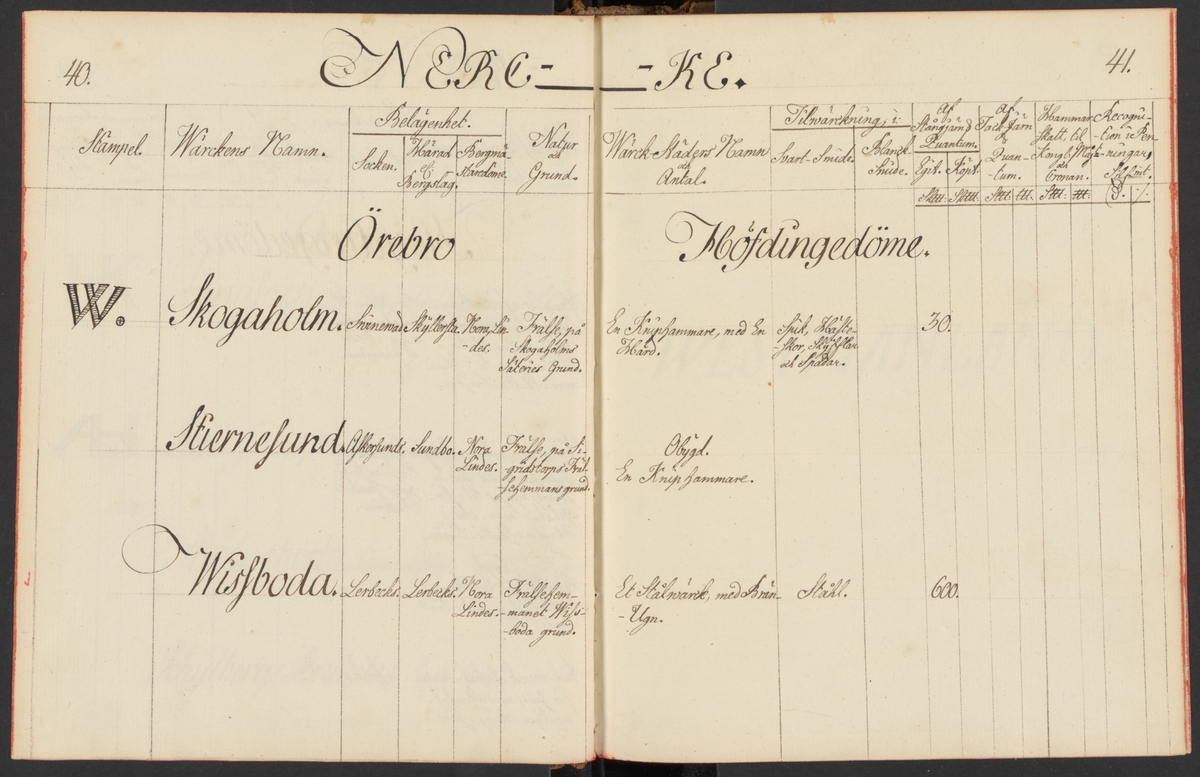 40.
NERC-
-KE.
41.
Stämpel.
Wärckens Namn.
Belägenhet.
Socken.
Härad
&
Bergslag.
Bergmä-
-staredöme.
Natur
och
Grund.
Wärck-Städers Namn
och
Antal.
Tilwärckning, i:
Svart-Smide.
Blanck-
Smide.
Af
Stångjärns
Quantum.
Egit.
Köpt.
Af
TackJärn
Quan-
-tum.
Hammar
Skatt, til
Kongl. Maj:t
och
Cronan.
Recogni-
-tion i Pen-
-ningar,
Örebro
Höfdingedöme.
W.
Skogaholm.
Svinnevad
Skyllersta.
Nora, Lin-
-des.
Frälse, på
Skogaholms
Säteries Grund.
En Kniphammare, med En
Härd.
Spik, Häste-
-skor, Skyfflar
och Spadar.
30.
Stiernesund.
Askersunds.
Sundbo.
Nora
Lindes.
Frälse, på Si-
gridstorps Fräl-
sehemmans grund.
Obygd.
En Kniphammare.
Wissboda.
Lerbecks.
Lerbecks.
Nora
Lindes.
Frälsehem-
manet Wiss-
-boda grund.
Et Stålwärck, med Brän-
-Ugn.
Stahl.
600.